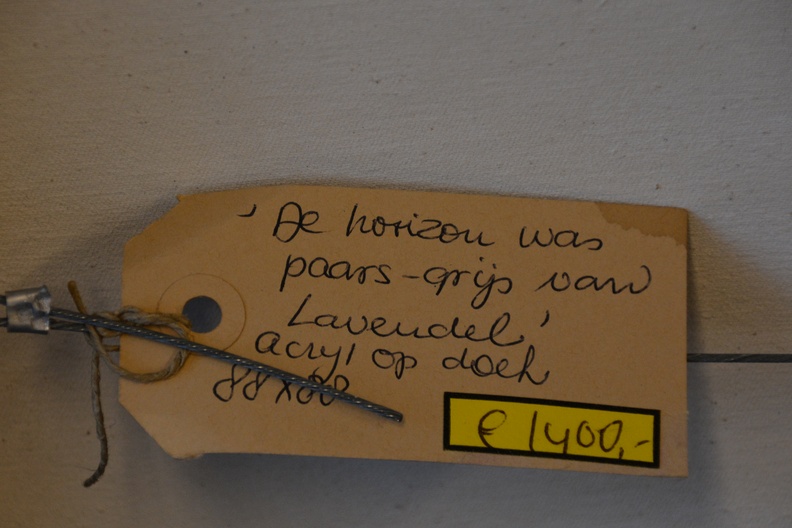 'De horizon was
paars-grijs van
Lavendel'
acryl op doek
88x88
€ 1400,-